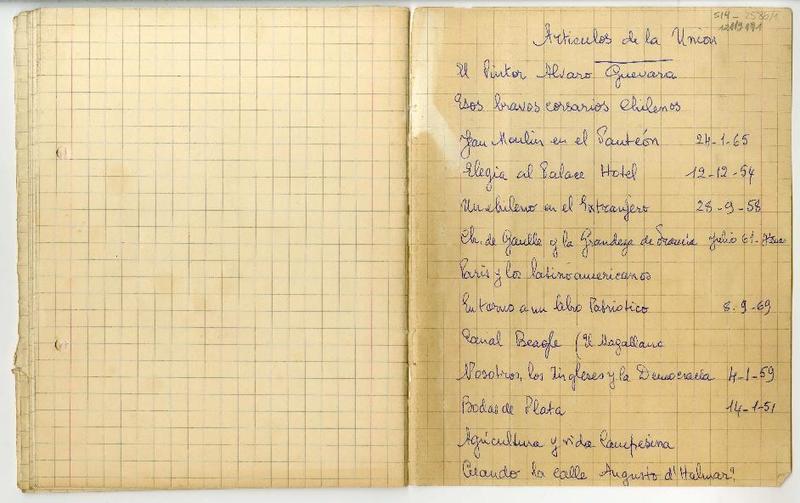 514-
Articulos de la Union
El Pintor Alvaro Guevara
Esos bravos corsarios chilenos
Jean Moulin en el Panteón 24-1-65
Elegia al Palace Hotel 12-12-54
Un chileno en el Extranjero 28-9-58
Ch. de Gaulle y la Grandeza de Francia julio 61-
Paris y los latinoamericanos
En torno a un libro Patriotico 8-9-69
Canal Beagle (El Magallanes
Nosotros, los Ingleses y la Democracia 4-1-59
Bodas de Plata 14-1-51
Agricultura y vida Campesina
Cuando la calle Augusto d'Halmar?